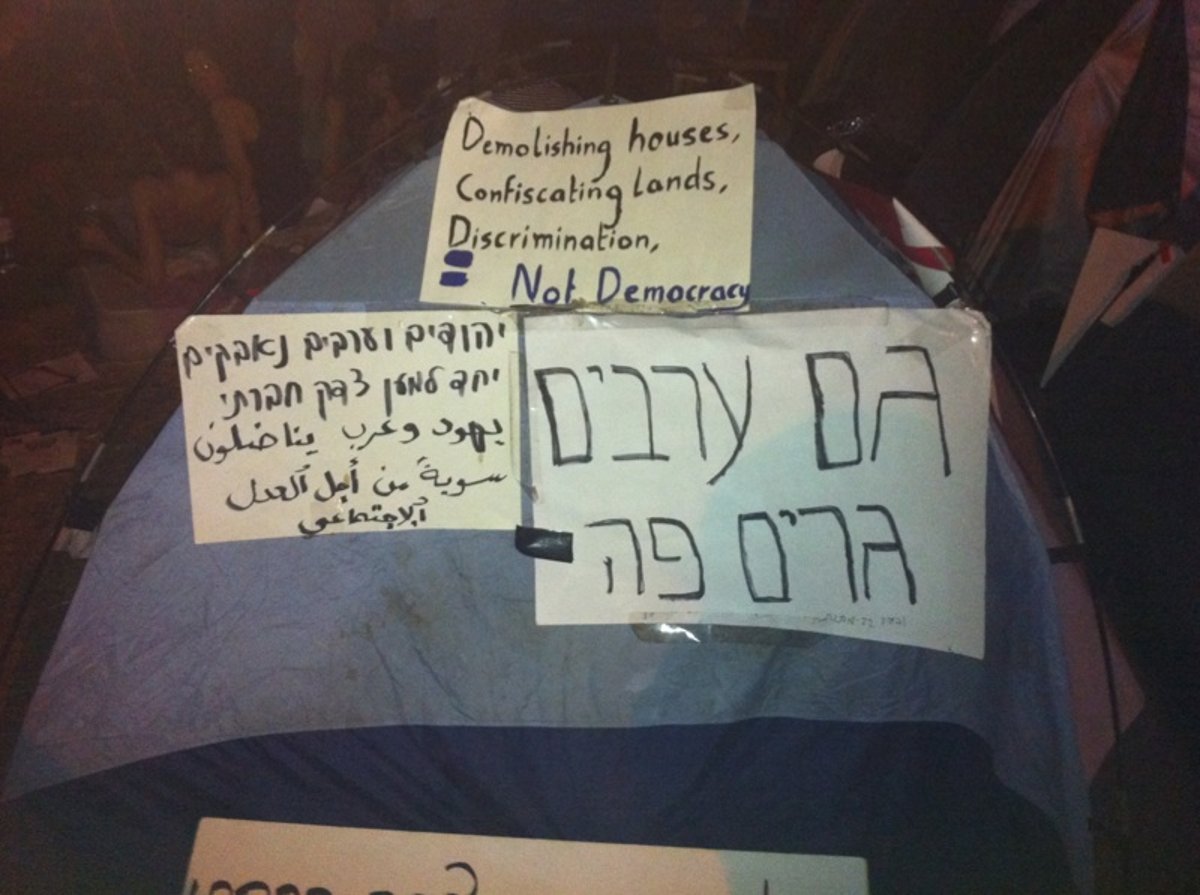 Demolishing houses,
Confiscating lands,
Discrimination,
= Not Democracy
יהודים וערבים נאבקים
יחד למען צדק חברתי
يهود وعرب يناضلون
سويةً من أجل العدل
الاجتماعي
גם ערבים
גרים פה